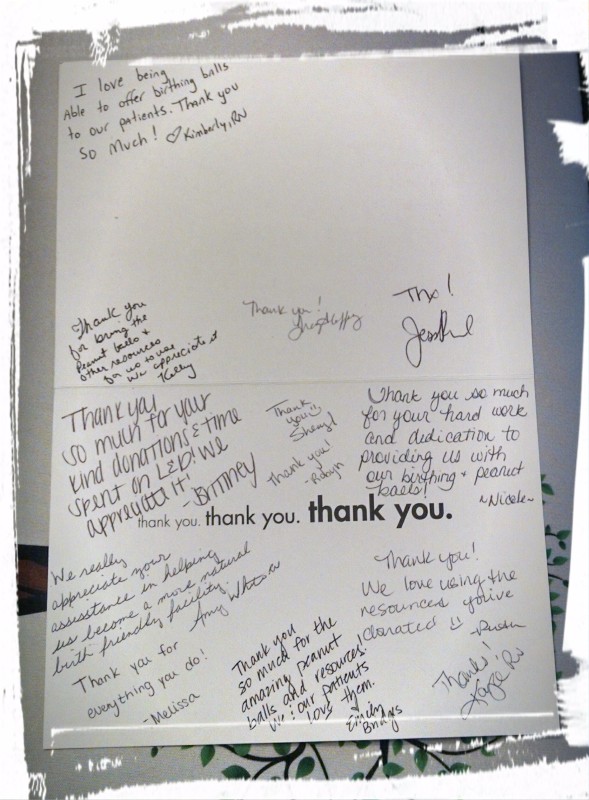 I love being
Able to offer birthing balls
to our patients. Thank you
So Much! ♡ Kimberly, RN
Thank you
for bring the
Peanut balls +
other resources
for us to use
We appreciate it
Kelly
Thank you!
Thx!
Thank you
so much for your
kind donations & time
spent on L&D! We
appreciate it!
- Brittney
Thank
you☺
Sheryl
Thank you!
- Robyn
Thank you so much
for your hard work
and dedication to
providing us with
our birthing + peanut
balls!
~Nicole~
thank you. thank you. thank you.
We really
appreciate your
assisstance in helping
us become a more natural
birth friendly facility.
Amy RN
Thank you for
everything you do!
- Melissa
Thank you
so much for the
amazing peanut
balls and resources!
We + our patients
love them.
Emily
Bridges
Thank you!
We love using the
resources you've
donated ☺
Thanks!
RN